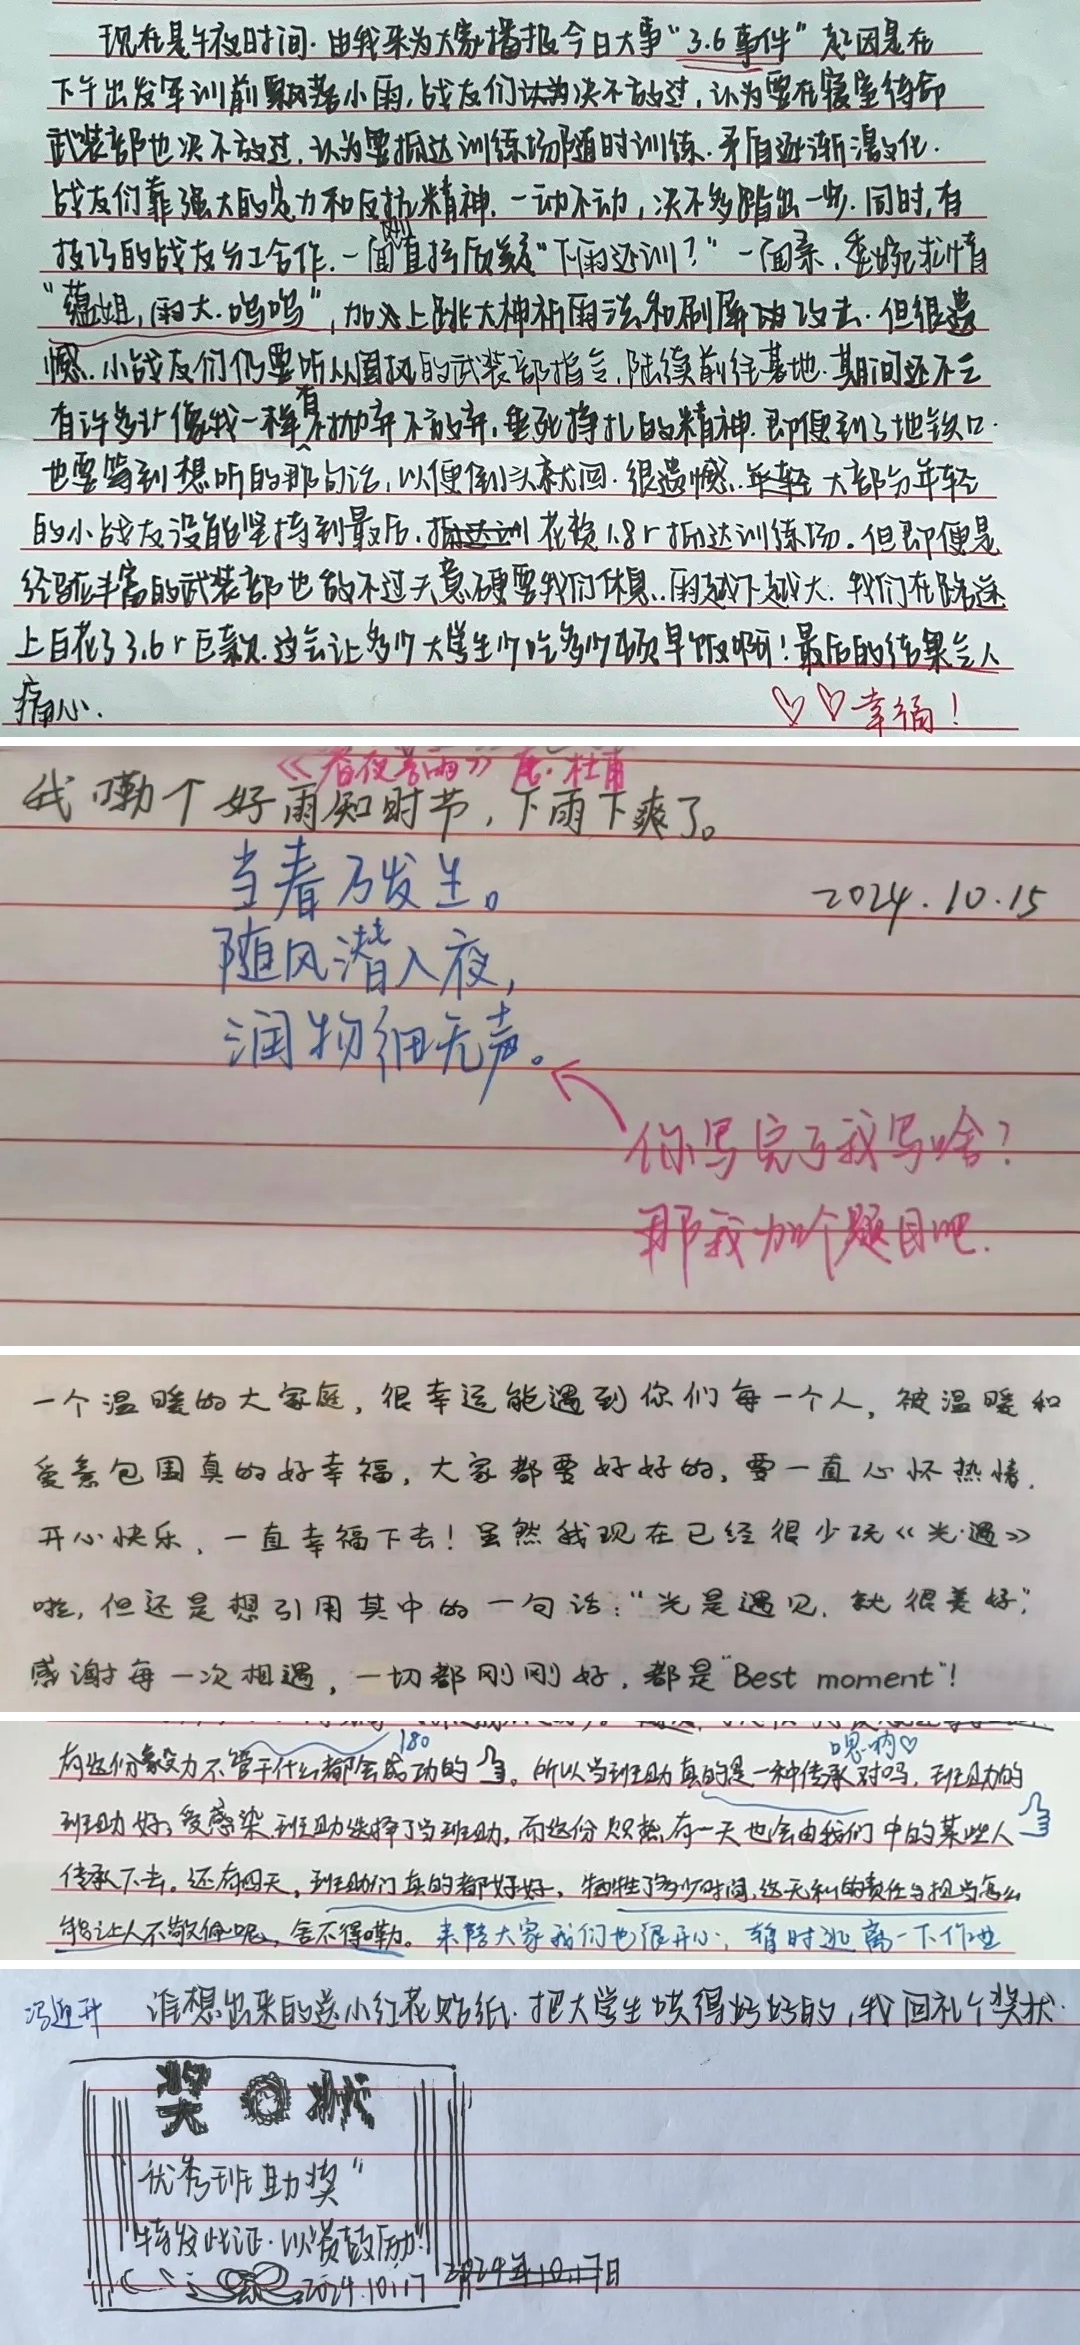 现在是午夜时间.由我来为大家播报今日大事"3.6事件"起因是在
下午出发军训前飘着小雨,战友们决不放过,认为要在寝室待命
武装部也决不放过,认为要抵达训练场随时训练.矛盾逐渐激化.
战友们靠强大的定力和反抗精神.一动不动,决不多踏出一步.同时,有
技巧的战友分工合作.一面直接质疑"下雨还训?"一面亲,委婉求情
"蕴姐,雨大.呜呜",加以上跳大神祈雨法和刷屏功攻击.但很遗
憾.小战友们仍要听从固执的武装部指令,陆续前往基地.期间还不乏
有许多像我一样有不抛弃不放弃,垂死挣扎的精神.即便到了地铁口.
也要等到想听的那句话,以便倒头就回.很遗憾.大部分年轻
的小战友没能坚持到最后.花费1.8r抵达训练场。但即便是
经验丰富的武装部也敌不过天意硬要我们休息..雨越下越大.我们在路途
上白花了3.6r巨款.这会让多少大学生少吃多少顿早饭啊!最后的结果令人
痛心.
♡♡幸福!
《春夜喜雨》唐·杜甫
我嘞个好雨知时节,下雨下爽了。
当春乃发生。
2024.10.15
随风潜入夜,
润物细无声。
你写完了我写啥?
那我加个题目吧.
一个温暖的大家庭,很幸运能遇到你们每一个人,被温暖和
爱意包围真的好幸福,大家都要好好的,要一直心怀热情,
开心快乐,一直幸福下去!虽然我现在已经很少玩《光·遇》
啦,但还是想引用其中的一句话:"光是遇见,就很美好",
感谢每一次相遇,一切都刚刚好,都是"Best moment"!
180
嗯呐♡
有这份毅力不管干什么都会成功的。所以当班助真的是一种传承对吗,班助的
班助好,受感染班助选择了当班助,而这份炽热有一天也会由我们中的某些人
传承下去。还有四天,班助们真的都好好,牺牲了多少时间,这无私的责任与担当怎么
能让人不敬佩呢,舍不得嘞。来陪大家我们也很开心,暂时逃离一下作业
冯迎升 谁想出来的送小红花贴纸.把大学生哄得好好的,我回礼个奖状.
奖状
优秀班助奖"
特发此证.以资鼓励!"
2024.10.17
2024年10.17日